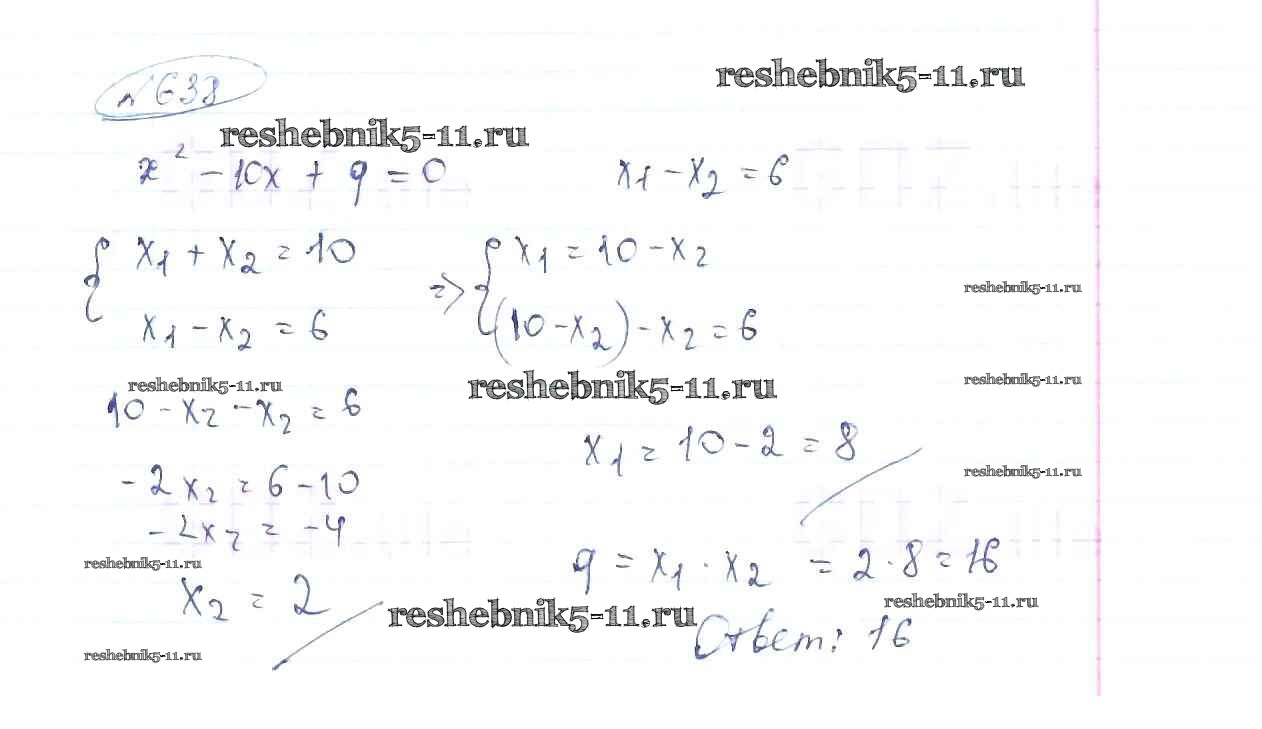 №638
reshebnik5-11.ru
reshebnik5-11.ru
x² - 10x + q = 0
x₁ - x₂ = 6
{ x₁ + x₂ = 10
x₁ - x₂ = 6
=> { x₁ = 10 - x₂
(10 - x₂) - x₂ = 6
reshebnik5-11.ru
reshebnik5-11.ru
reshebnik5-11.ru
reshebnik5-11.ru
10 - x₂ - x₂ = 6
-2x₂ = 6 - 10
-2x₂ = -4
reshebnik5-11.ru
x₂ = 2
reshebnik5-11.ru
x₁ = 10 - 2 = 8
reshebnik5-11.ru
q = x₁ · x₂ = 2 · 8 = 16
reshebnik5-11.ru
reshebnik5-11.ru
Ответ: 16